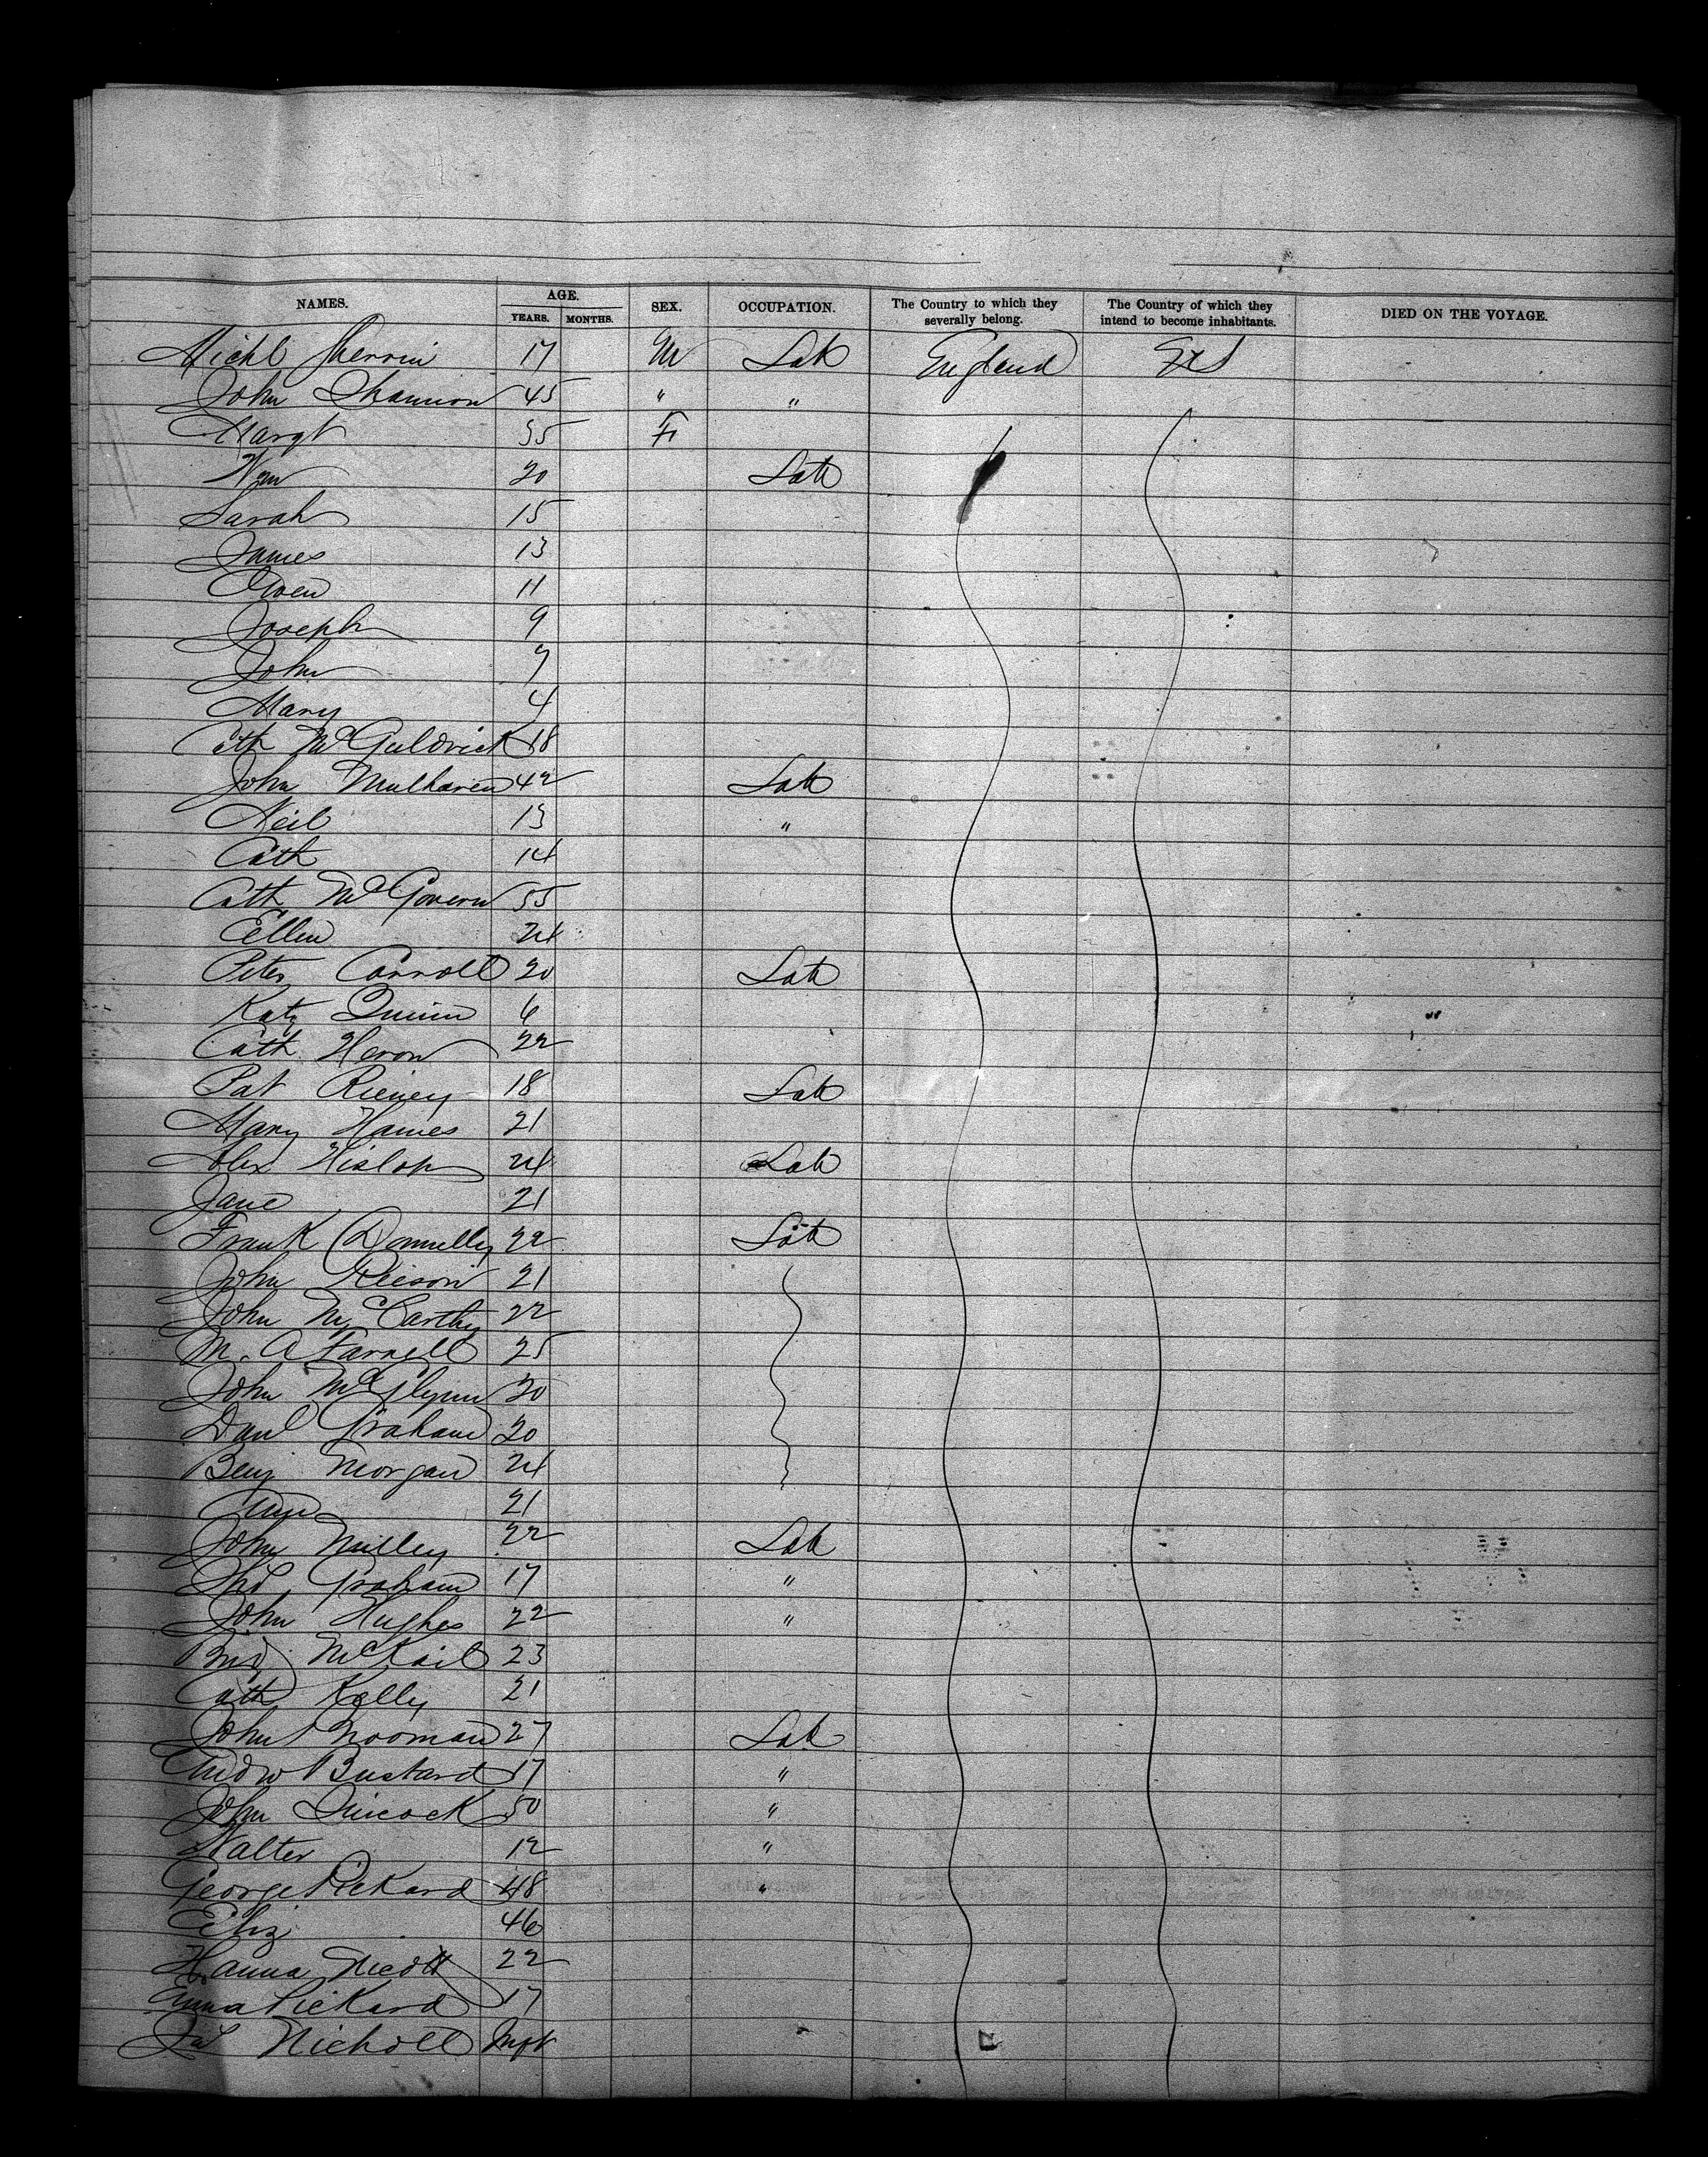 NAMES. AGE. SEX. OCCUPATION. The Country to which they severally belong. The Country of which they intend to become inhabitants. DIED ON THE VOYAGE.
YEARS. MONTHS.
Michl 17 M Lab England
John Shannon 45 " "
Margt 35 F
Wm 20 Lab
Sarah 15
James 13
Owen 11
Joseph 9
John 7
Mary 4
Cath McGuldrick 18
John Mulharen 42 Lab
Neil 13 "
Cath 14
Cath McGovern 55
Ellen 24
Peter Carroll 20 Lab
Katy Quinn 6
Cath Heron 22
Pat Rieney 18 Lab
Mary Hames 21
Alex Hislop 24 Lab
Jane 21
Frank Donnelly 22 Lab
John 21
John McCarthy 22
M. A Farrell 25
John McGlynn 20
Danl Graham 20
Benj Morgan 24
Ann 21
John 22 Lab
Graham 17 "
John Hughes 22 "
Brid McKail 23
Cath Kelly 21
John Nooman 27 Lab
Andw Bustard 17 "
John 50 "
Walter 12 "
George Pickard 48 "
Eliz 46
Hanna 22
Emma Pickard 17
Nicholl Inft